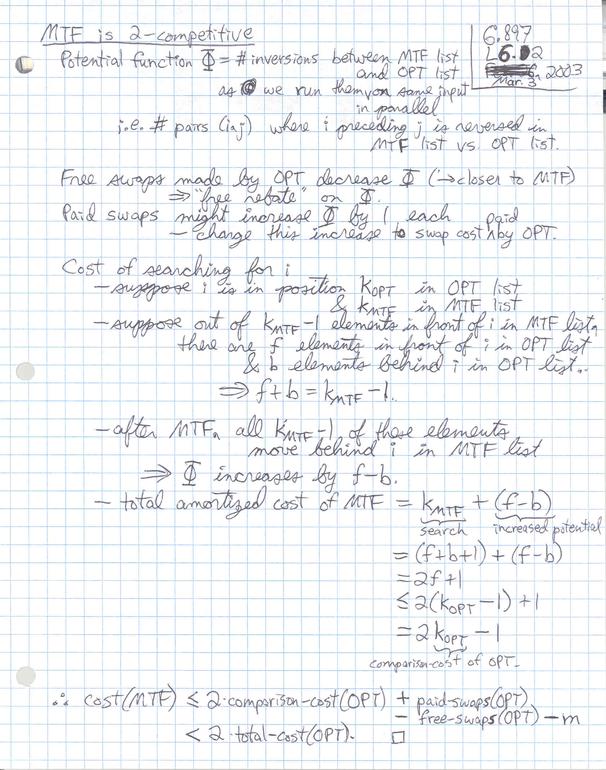 MTF is 2-competitive
6.897
L6.2
Mar. 3, 2003
Potential function Φ = # inversions between MTF list
and OPT list
as we run them on same input
in parallel
i.e. # pairs (i,j) where i preceding j is reversed in
MTF list vs. OPT list.
Free swaps made by OPT decrease Φ (→closer to MTF)
⇒ "free rebate" on Φ.
Paid swaps might increase Φ by 1 each
– charge this increase to swap cost ^paid by OPT.
Cost of searching for i
– suppose i is in position k_OPT in OPT list
& k_MTF in MTF list
– suppose out of k_MTF-1 elements in front of i in MTF list,
there are f elements in front of i in OPT list
& b elements behind i in OPT list.
⇒ f+b = k_MTF - 1.
– after MTF, all k_MTF-1 of these elements
move behind i in MTF list
⇒ Φ increases by f-b.
– total amortized cost of MTF = k_MTF + (f-b)
search increased potential
= (f+b+1) + (f-b)
= 2f+1
≤ 2(k_OPT - 1) + 1
= 2k_OPT - 1
comparison-cost of OPT.
∴ cost(MTF) ≤ 2·comparison-cost(OPT) + paid-swaps(OPT)
– free-swaps(OPT) – m
< 2·total-cost(OPT). □